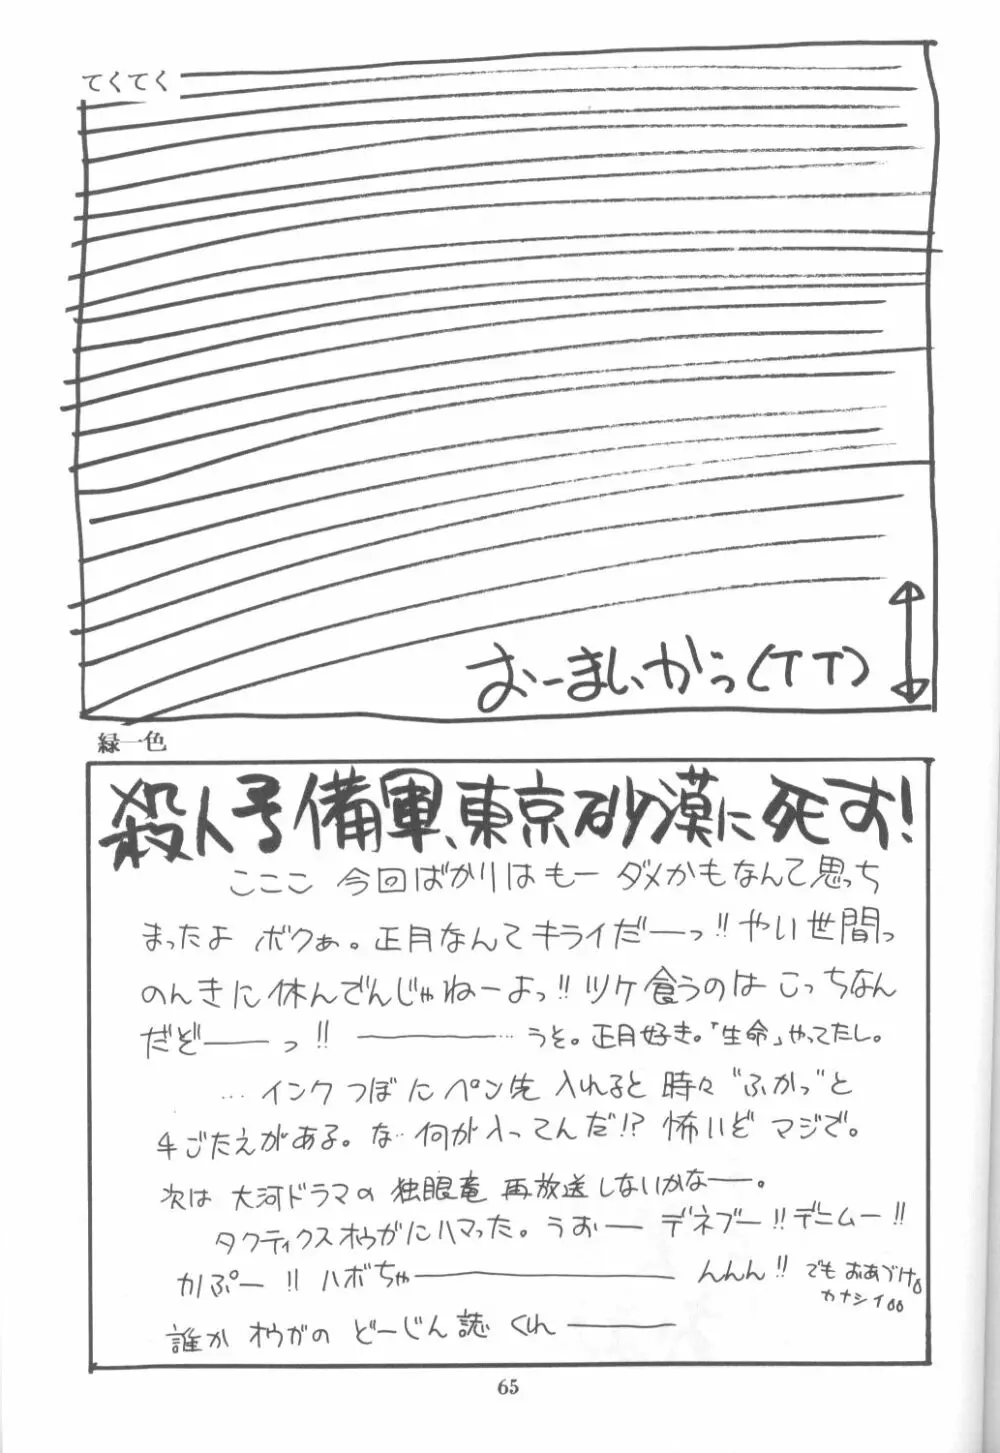 てくてく
おーまいがっ(TT)
緑一色
殺人予備軍、東京砂漠に死す!
こここ 今回ばかりはもー ダメかもなんて思っち
まったよ ボクぁ。正月なんてキライだーっ!!やい世間っ
のんきに休んでんじゃねーよっ!!ツケ食うのは こっちなん
だぞ――っ!! ――――…うそ。正月好き。「生命」やってたし。
…インクつぼにペン先 入れると 時々 “ふかっ”と
手ごたえがある。な…何が入ってんだ!? 怖いぞ マジで。
次は 大河ドラマの 独眼竜 再放送しないかなー。
タクティクスオウガにハマった。うおー デネブー!!デニムー!!
かぷー!! ハボちゃ――――――んんん!! でも おあづけ。
カナシイ。。
誰か オウガの どーじん誌 くれ――――
65